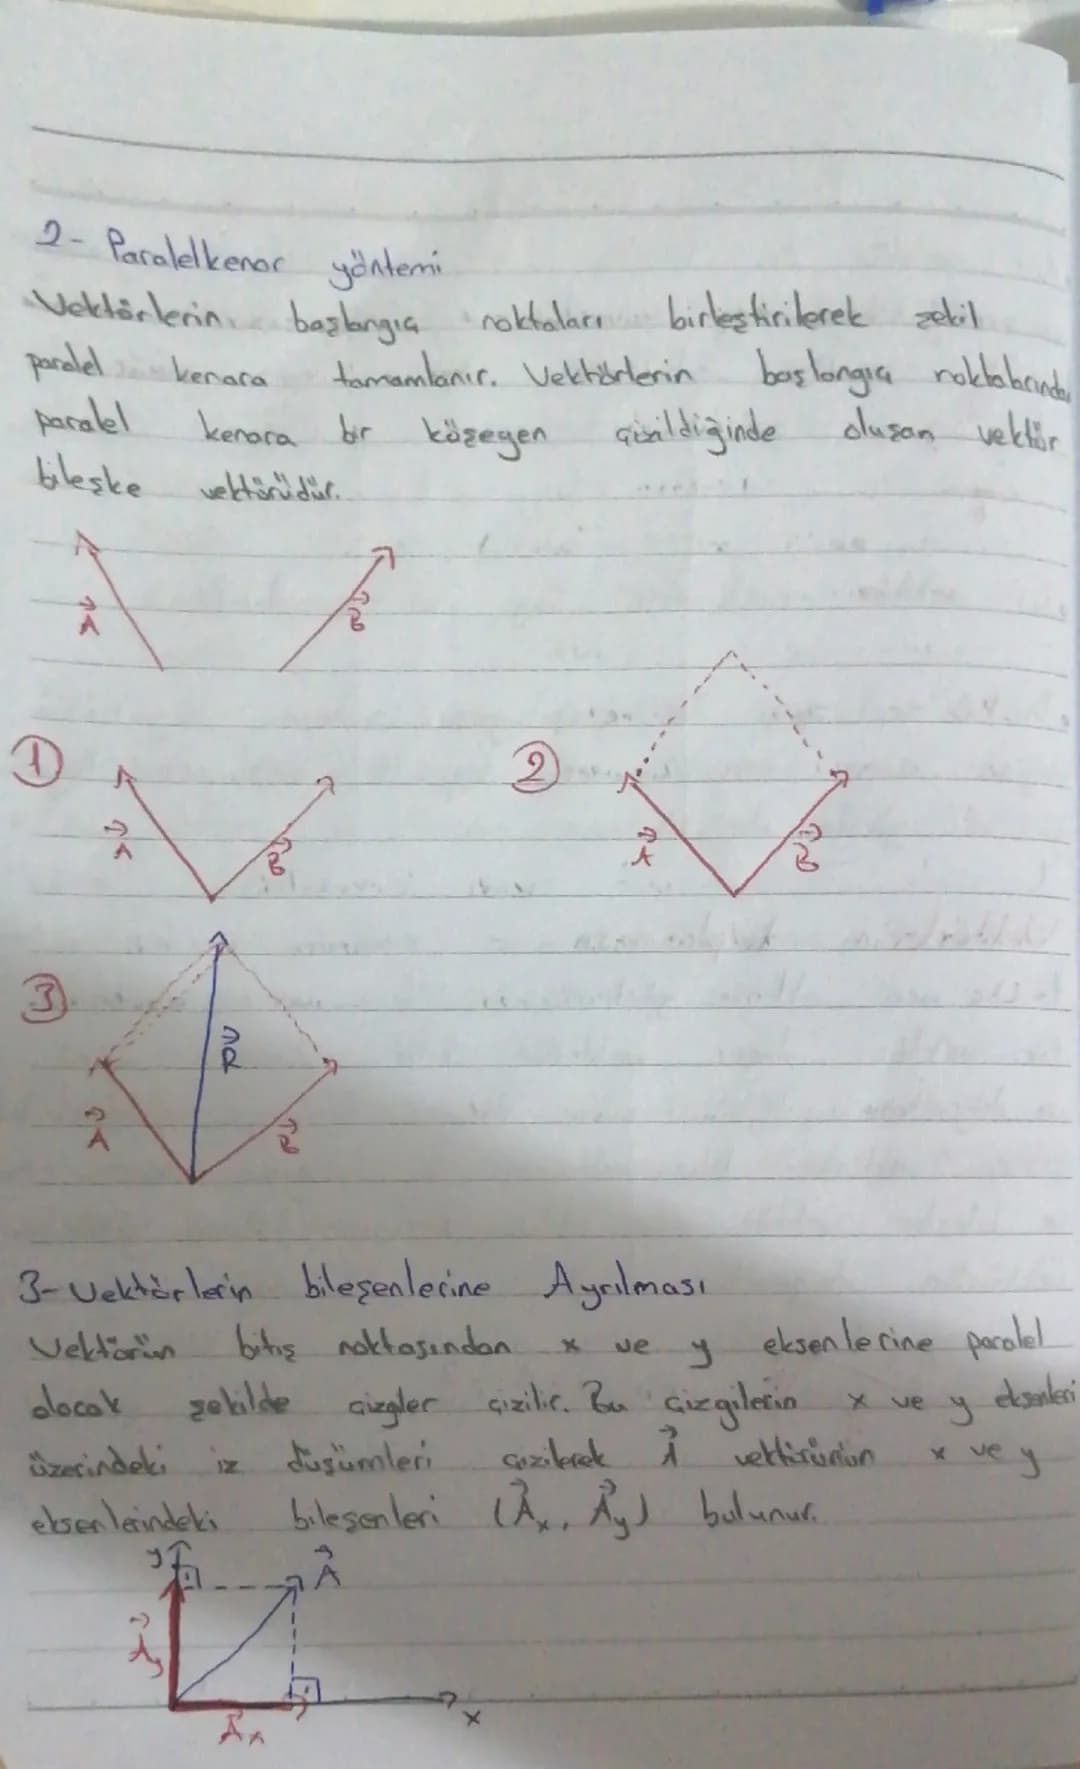 2- Paralelkenar yöntemi
Vektörlerin başlangıç noktaları birleştirilerek şekil
paralel kenara tamamlanır. Vektörlerin başlangıç noktalarından
paralel kenara bir közegen çizildiğinde oluşan vektör
bileşke vektörüdür.
A B
1 A B
2 A B
3 A R B
3- Vektörlerin bileşenlerine Ayrılması
Vektörün bitiş noktasından x ve y eksenlerine paralel
olacak şekilde çizgler çizilir. Bu çizgilerin x ve y eksenleri
üzerindeki iz düşümleri çizilerek A vektörünün x ve y
eksenlerindeki bileşenleri (Ax, Ay) bulunur.
y A
Ay
Ax x